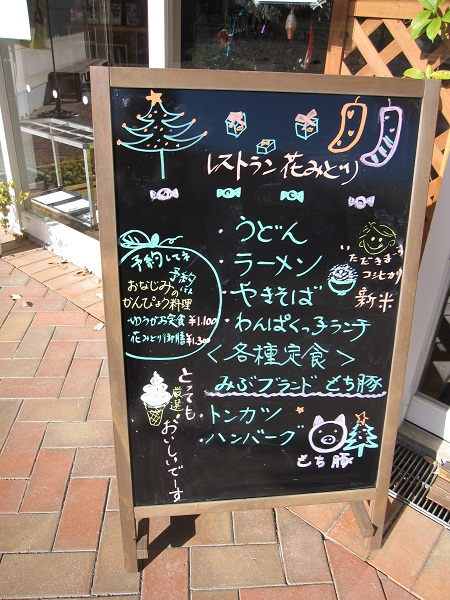 レストラン花みどり
・うどん
・ラーメン
・やきそば
・わんぱくっ子ランチ
＜各種定食＞
みぶブランド もち豚
・トンカツ
・ハンバーグ
もち豚
いただきまーす
コシヒカリ
新米
予約してネ
おなじみの
かんぴょう料理
ゆうがお定食 ¥1,100
花みどり御膳
とっても
おいしいでーす
厳選